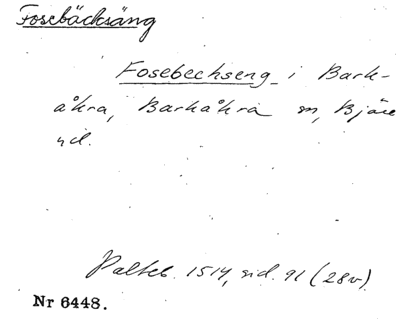 Fosebäcksäng
Fosebechseng i Bark-
åkra, Barkåkra sn, Bjäre
hd.
Palteb. 1514, sid. 91 (28v).
Nr 6448.